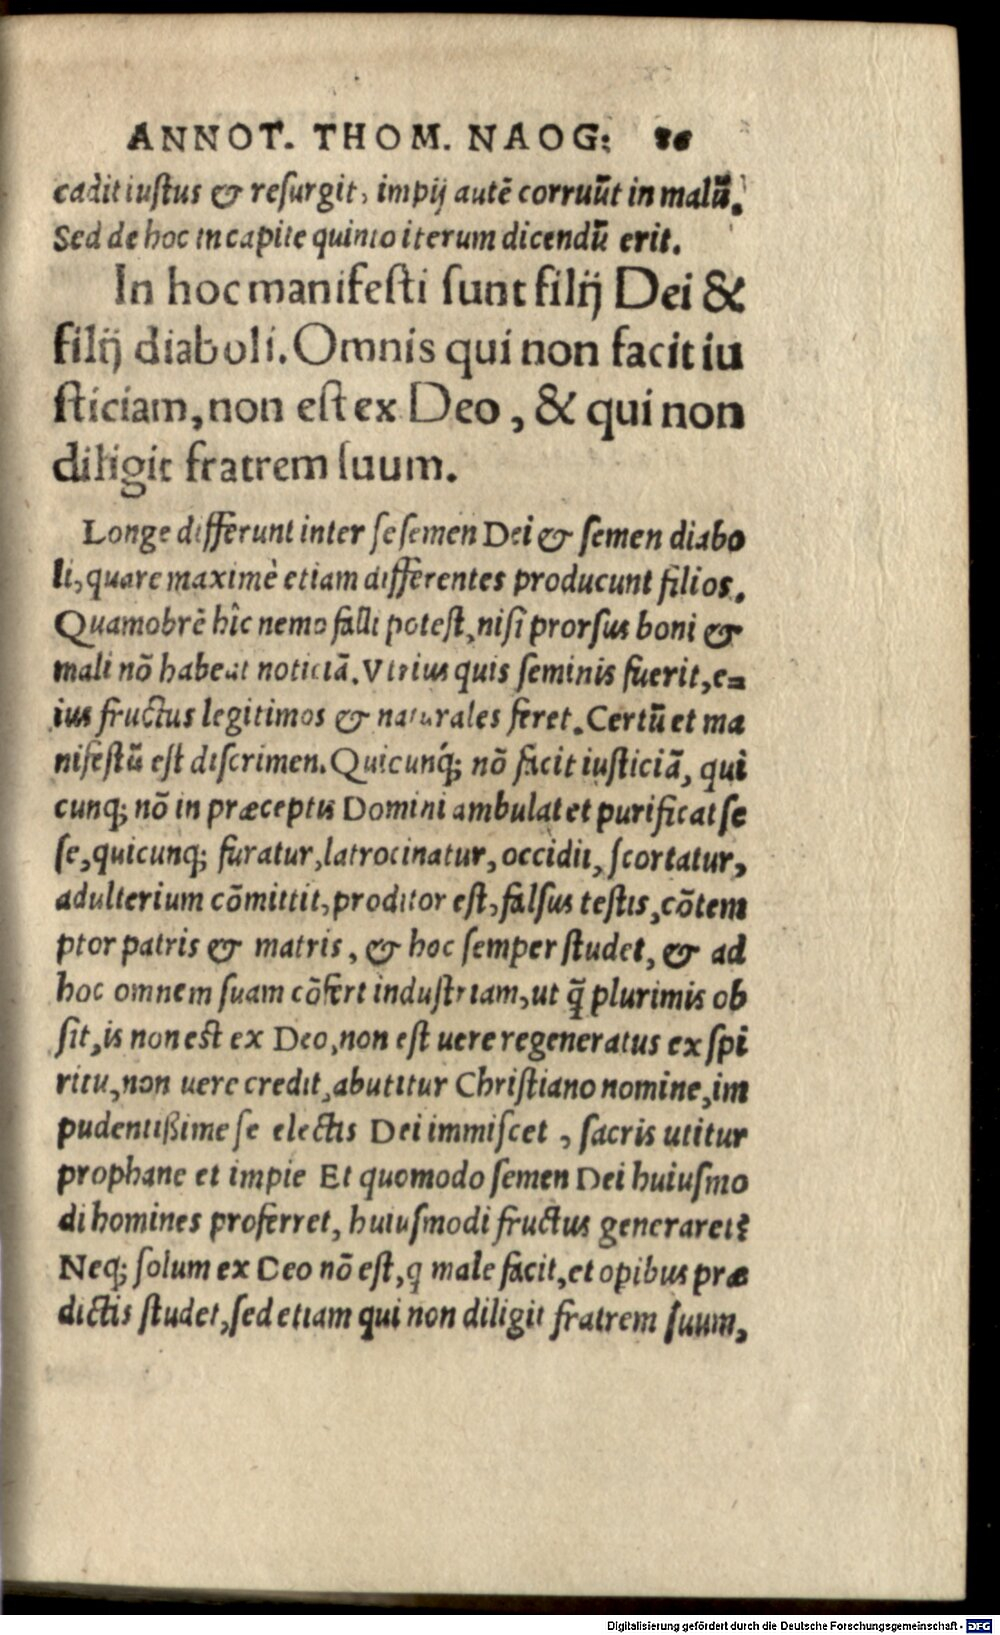 ANNOT. THOM. NAOG: 86
cadit iustus & resurgit, impij autē corruūt in malū.
Sed de hoc in capite quinto iterum dicendū erit.
In hoc manifesti sunt filij Dei &
filij diaboli. Omnis qui non facit iu
sticiam, non est ex Deo, & qui non
diligit fratrem suum.
Longe differunt inter se semen Dei & semen diabo
li, quare maximè etiam differentes producunt filios.
Quamobrē hîc nemo falli potest, nisi prorsus boni &
mali nō habeat noticiā. Vtrius quis seminis fuerit, e=
ius fructus legitimos & naturales feret. Certū et ma
nifestū est discrimen. Quicunq́; nō facit iusticiā, qui
cunq; nō in præceptis Domini ambulat et purificat se
se, quicunq; furatur, latrocinatur, occidit, scortatur,
adulterium cōmittit, proditor est, falsus testis, cōtem
ptor patris & matris, & hoc semper studet, & ad
hoc omnem suam cōfert industriam, ut q̄ plurimis ob
sit, is non est ex Deo, non est uere regeneratus ex spi
ritu, non uere credit, abutitur Christiano nomine, im
pudentißime se electis Dei immiscet, sacris utitur
prophane et impie Et quomodo semen Dei huiusmo
di homines proferret, huiusmodi fructus generaret?
Neq; solum ex Deo nō est, q male facit, et opibus præ
dictis studet, sed etiam qui non diligit fratrem suum,
Digitalisierung gefördert durch die Deutsche Forschungsgemeinschaft - DFG